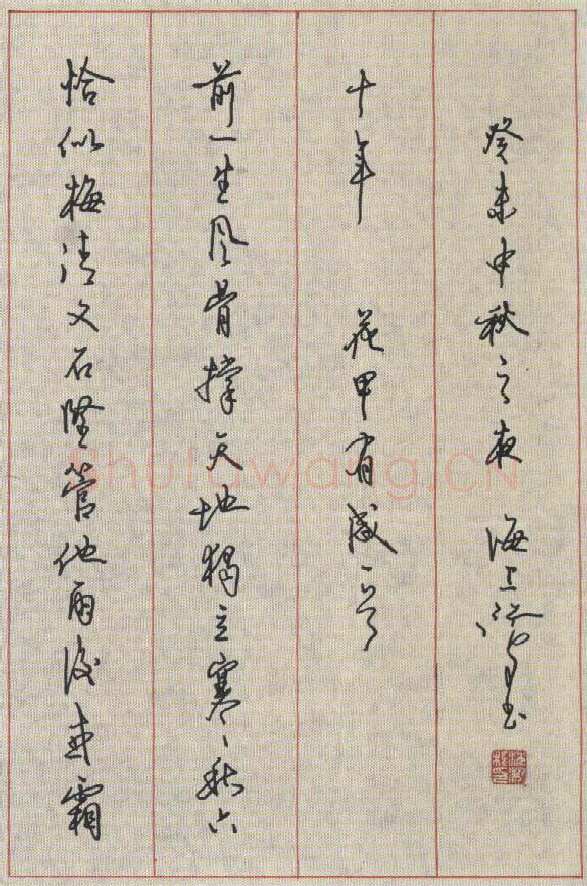 恰似梅清又石坚管他雨后或霜
前一生风骨撑天地独立寒秋六
十年 花甲有感
癸未中秋之夜 海上
shufawang.CN